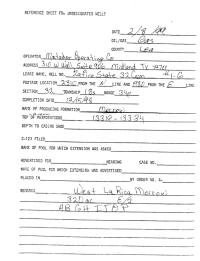 REFERENCE SHEET FOR UNDESIGNATED WELLS
DATE 2/8/
OIL/GAS Gas
COUNTY Lea
OPERATOR Matador Operating Co
ADDRESS 310 W Wall, Suite 906 Midland Tx 79701
LEASE NAME, WELL NO. State 32 Com #1-G
FOOTAGE LOCATION FROM THE N LINE AND 1980 FROM THE E LINE
SECTION 32 TOWNSHIP 18s RANGE 34e
COMPLETION DATE
NAME OF PRODUCING FORMATION Morrow
TOP OF PERFORATIONS 13318 - 13334
DEPTH TO CASING SHOE
C-123 FILED
NAME OF POOL FOR WHICH EXTENSION WAS ASKED
ADVERTISED FOR HEARING CASE NO.
NAME OF POOL FOR WHICH EXTENSION WAS ADVERTISED
PLACED IN BY ORDER NO. R-
REMARKS West La Rica Morrow
320ac E/2
AB GH IJ OP